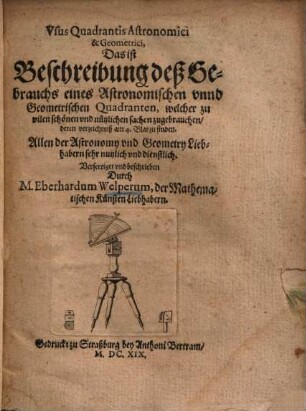 Vsus Quadrantis Astronomici
& Geometrici,
Das ist
Beschreibung deß Ge-
brauchs eines Astronomischen vnnd
Geometrischen Quadranten, welcher zu
vilen schönen vnd nützlichen sachen zugebrauchen/
deren verzeichnuß am 4. Blat zu finden.
Allen der Astronomy vnd Geometry Lieb-
habern sehr nutzlich vnd dienstlich.
Verfertiget vnd beschrieben
Durch
M. Eberhardum Welperum, der Mathema-
tischen Künsten Liebhabern.
Gedruckt zu Straßburg bey Anthoni Bertram/
M. DC. XIX.